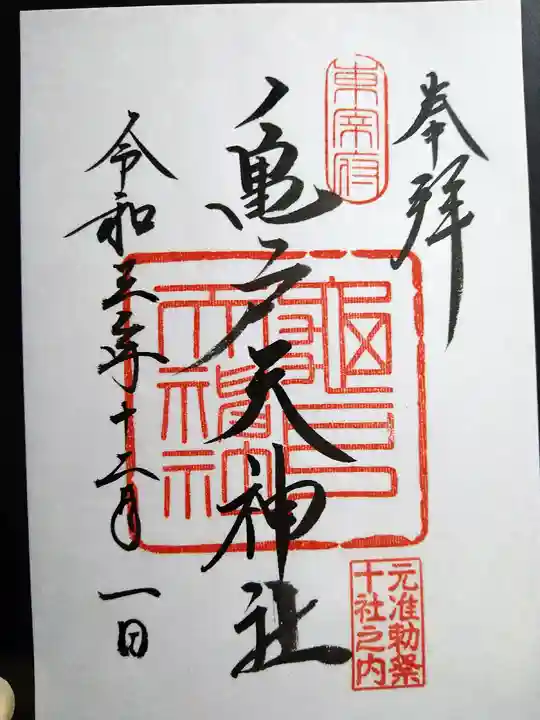 奉拝
東宰府
亀戸天神社
元准勅祭
十社之内
令和三年十二月一日